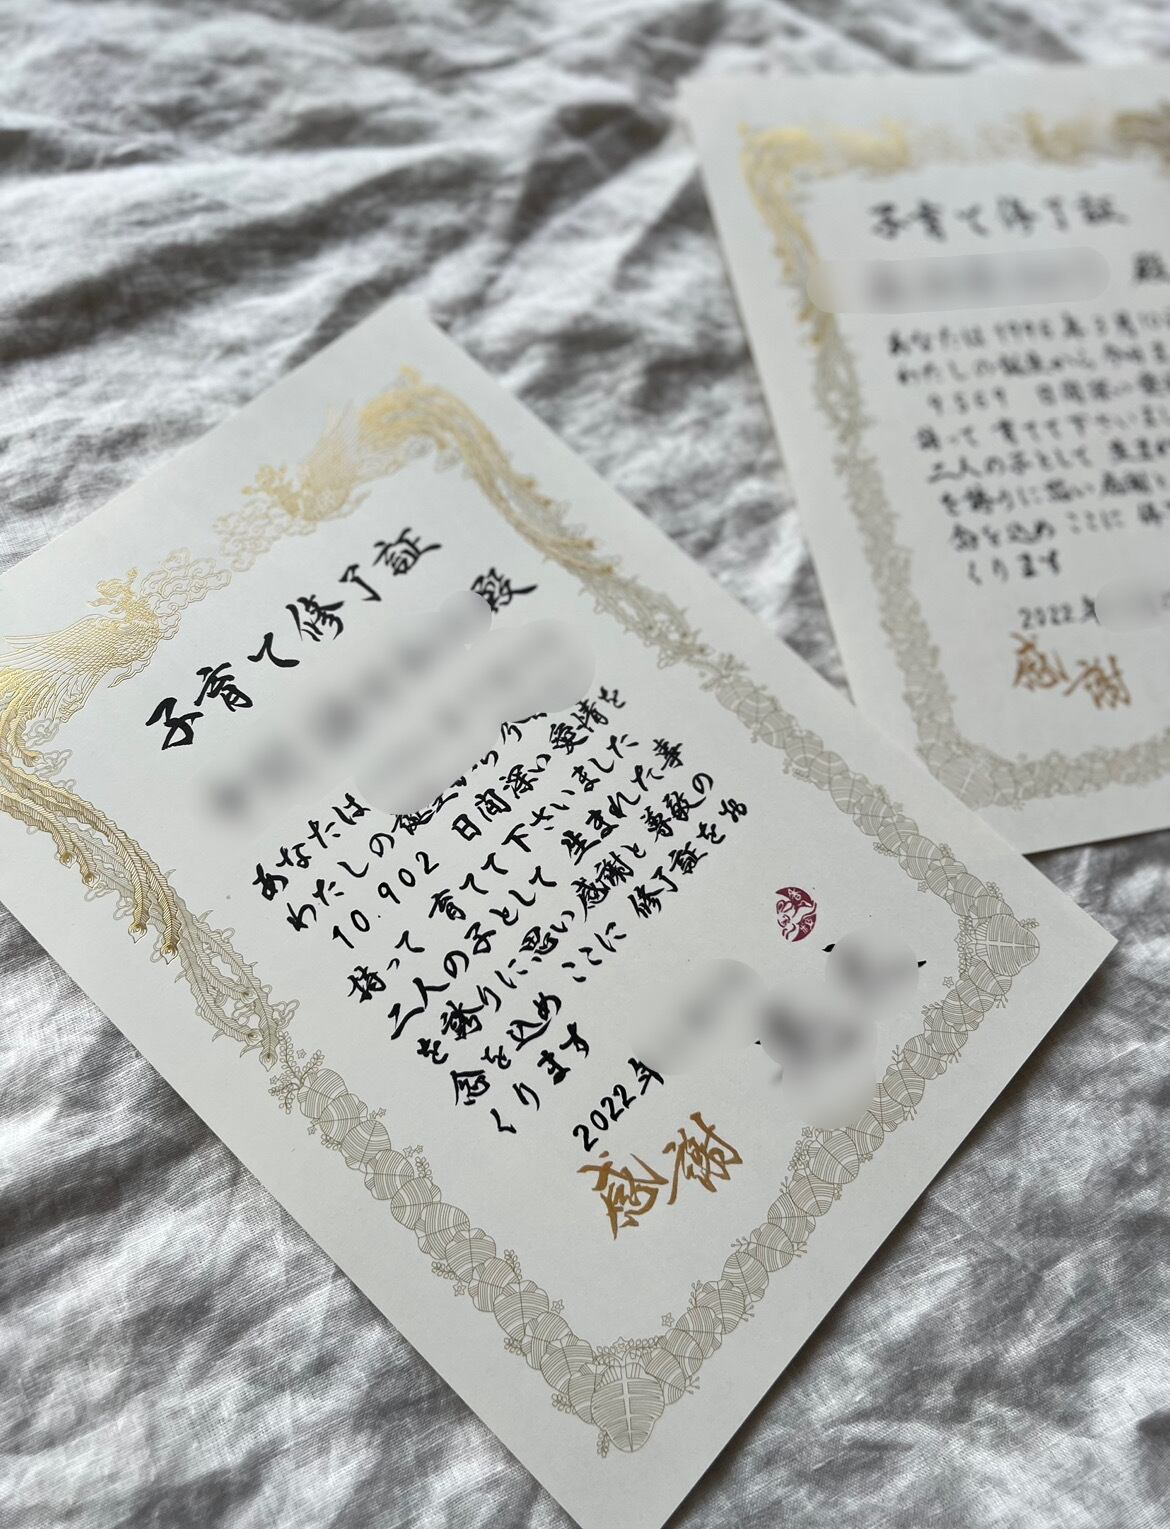 子育て修了証
殿
あなたは
わたしの誕生から今
10.902 日間深い愛情を
持って 育てて下さいました
二人の子として 生まれた事
を誇りに思い感謝と尊敬の
念を込め ここに 修了証を お
くります
2022年
感謝
子育て修了証
殿
あなたは1996年3月
わたしの誕生から今日ま
9569 日間深い愛
持って育てて下さいまし
二人の子として 生まれ
を誇りに思い感謝と
念を込め ここに 修
くります
2022年
感謝